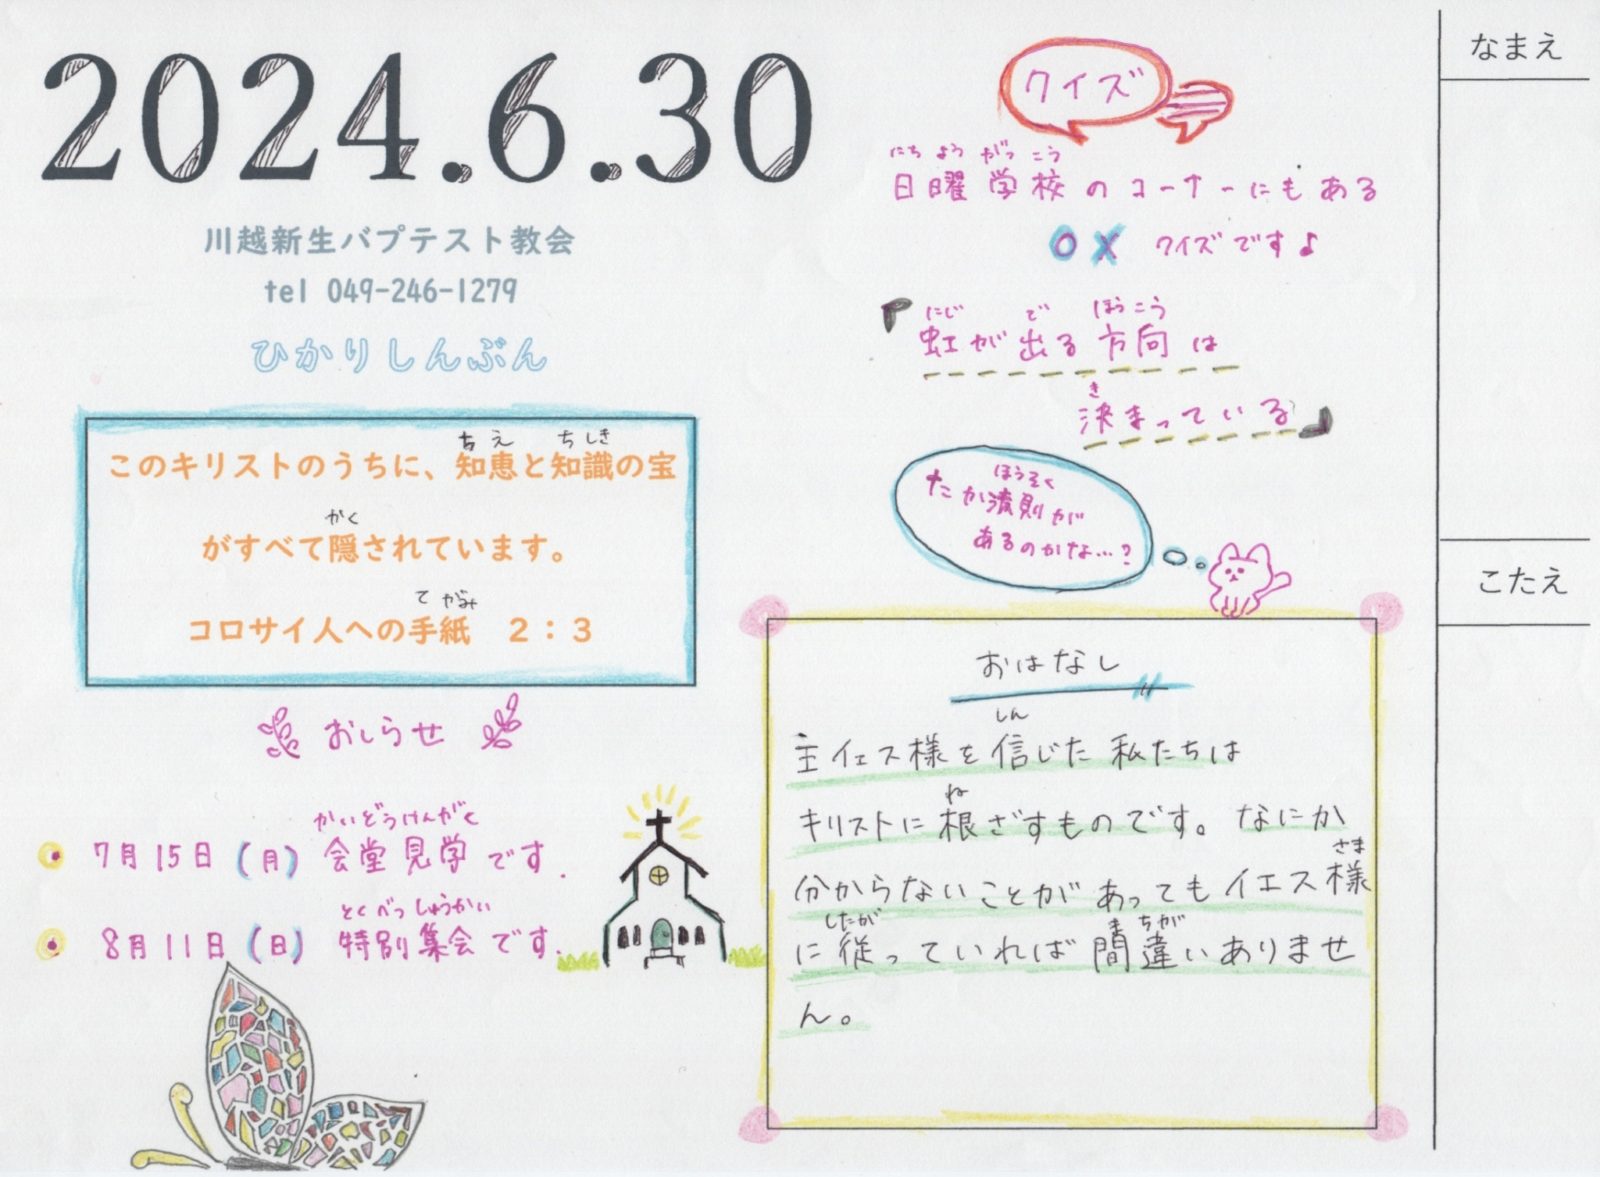 2024.6.30
川越新生バプテスト教会
tel 049-246-1279
ひかりしんぶん
ちえ ちしき
このキリストのうちに、知恵と知識の宝
かく
がすべて隠されています。
てがみ
コロサイ人への手紙 2:3
おしらせ
かいどうけんがく
7月15日(月)会堂見学です.
とくべっしゅうかい
8月11日(日)特別集会です.
クイズ
にちようがっこう
日曜学校のコーナーにもある
OX クイズです♪
にじ で ほうこう
『虹が出る方向は
き
決まっている』
ほうそく
法則が
あるのかな…?
おはなし
しん
主イエス様を信じた私たちは
ね
キリストに根ざすものです。なにか
さま
分からないことがあってもイエス様
したが まちが
に従っていれば間違いありませ
ん。
なまえ
こたえ